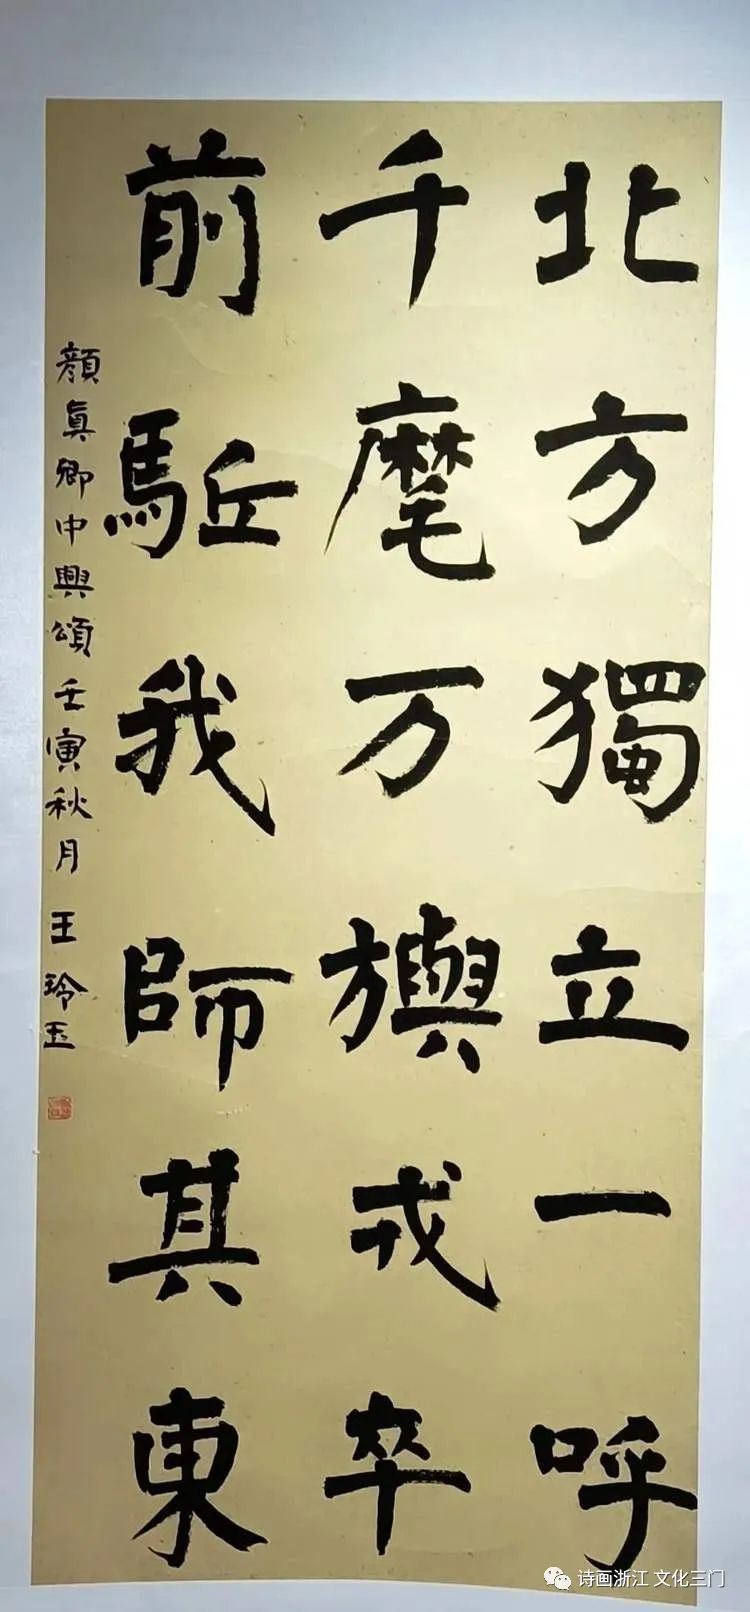 北方獨立一呼
千麾万旟戎卒
前駈我師其東
顔眞卿中興頌壬寅秋月王玲玉
诗画浙江 文化三门